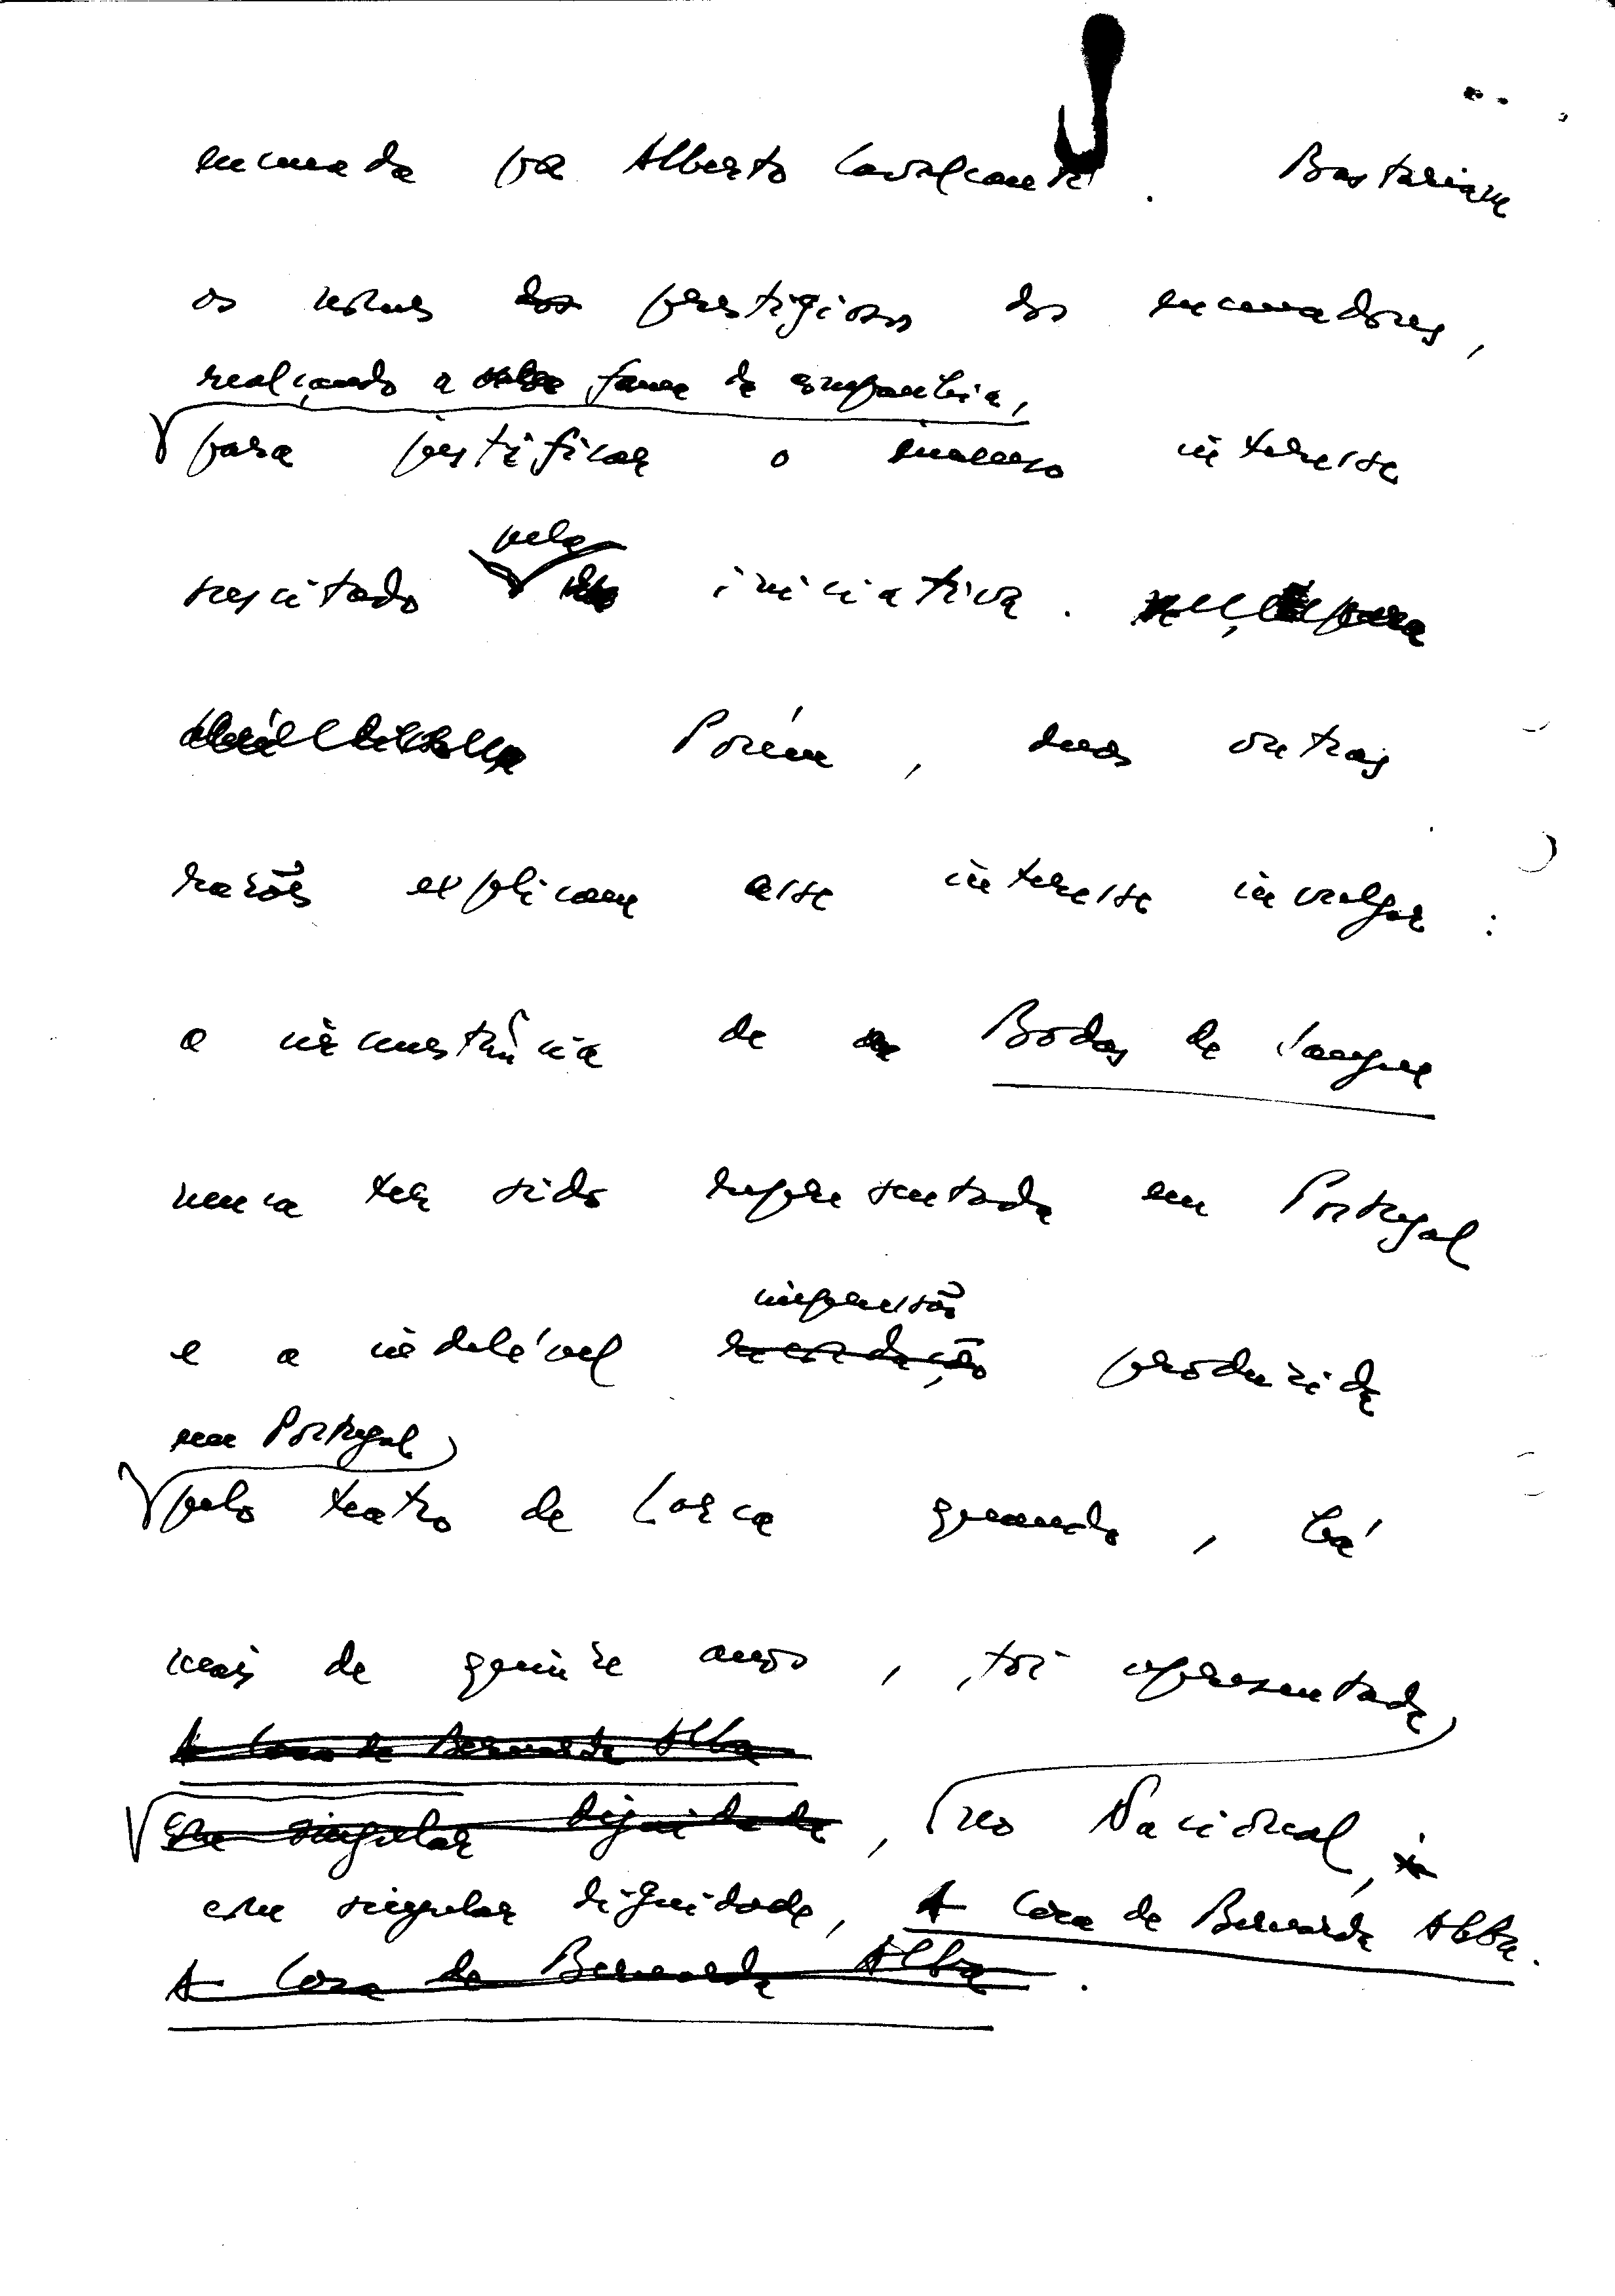 encenada por Alberto Cavalcanti. Bastariam
os nomes dos prestigiosos dos encenadores,
realçando a fama da companhia,
para justificar o imenso interesse
suscitado pela iniciativa. para
Porém, duas outras
razões explicam esse interesse invulgar:
a circunstância de Bodas de Sangue
nunca ter sido representada em Portugal
impressão
e a indelével recordação produzida
em Portugal
pelo teatro de Lorca quando, há
mais de quinze anos, foi apresentada
A Casa de Bernarda Alba
com singular dignidade, no Nacional,
com singular dignidade, A Casa de Bernarda Alba.
A Casa de Bernarda Alba.